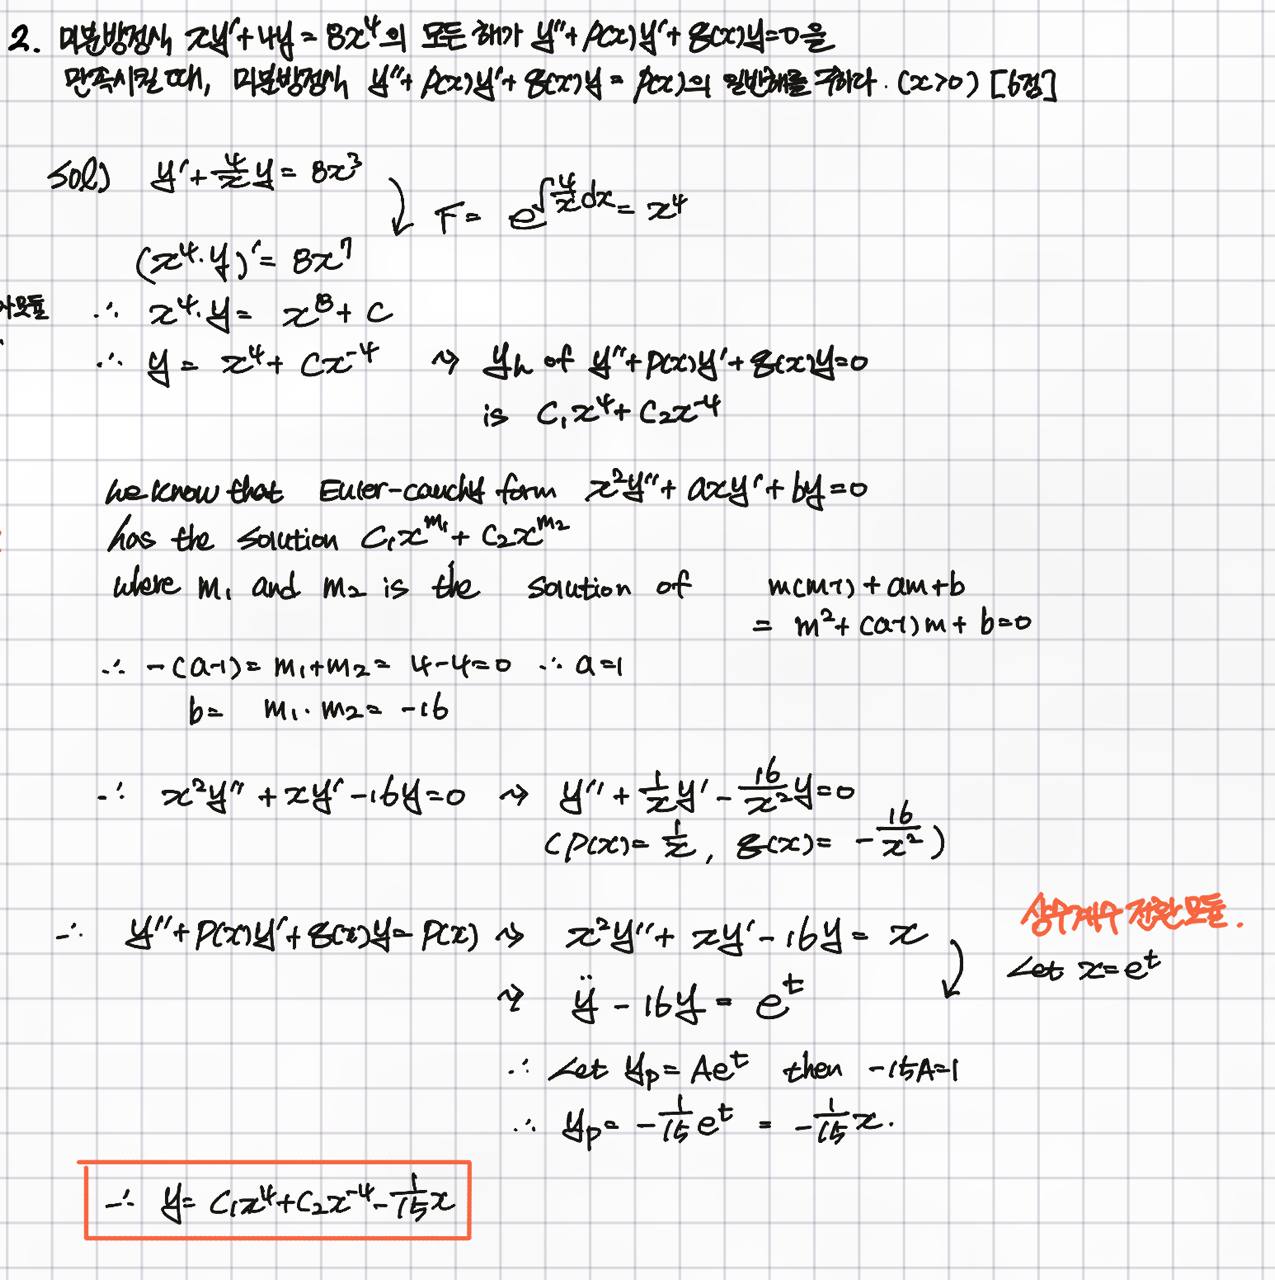 2. 미분방정식 xy′+4y=8x⁴의 모든 해가 y″+p(x)y′+q(x)y=0을
만족시킬 때, 미분방정식 y″+p(x)y′+q(x)y=p(x)의 일반해를 구하라. (x>0) [6점]
sol) y′+4/x y=8x³
F= e^∫4/x dx = x⁴
(x⁴·y)′=8x⁷
∴ x⁴·y= x⁸+C
∴ y= x⁴+Cx⁻⁴ ⇝ yh of y″+p(x)y′+q(x)y=0
is C₁x⁴+C₂x⁻⁴
we know that Euler-cauchy form x²y″+axy′+by=0
has the solution C₁x^m₁+C₂x^m₂
where m₁ and m₂ is the solution of m(m-1)+am+b
= m²+(a-1)m+b=0
∴ -(a-1)=m₁+m₂=4-4=0 ∴ a=1
b= m₁·m₂=-16
∴ x²y″+xy′-16y=0 ⇝ y″+1/x y′-16/x² y=0
(p(x)=1/x, q(x)=-16/x²)
∴ y″+p(x)y′+q(x)y=p(x) ⇝ x²y″+xy′-16y=x
상수계수 전환모듈.
Let x=e^t
⇝ ÿ-16y=e^t
∴ Let yp=Ae^t then -15A=1
∴ yp=-1/15 e^t = -1/15 x.
∴ y=C₁x⁴+C₂x⁻⁴-1/15 x